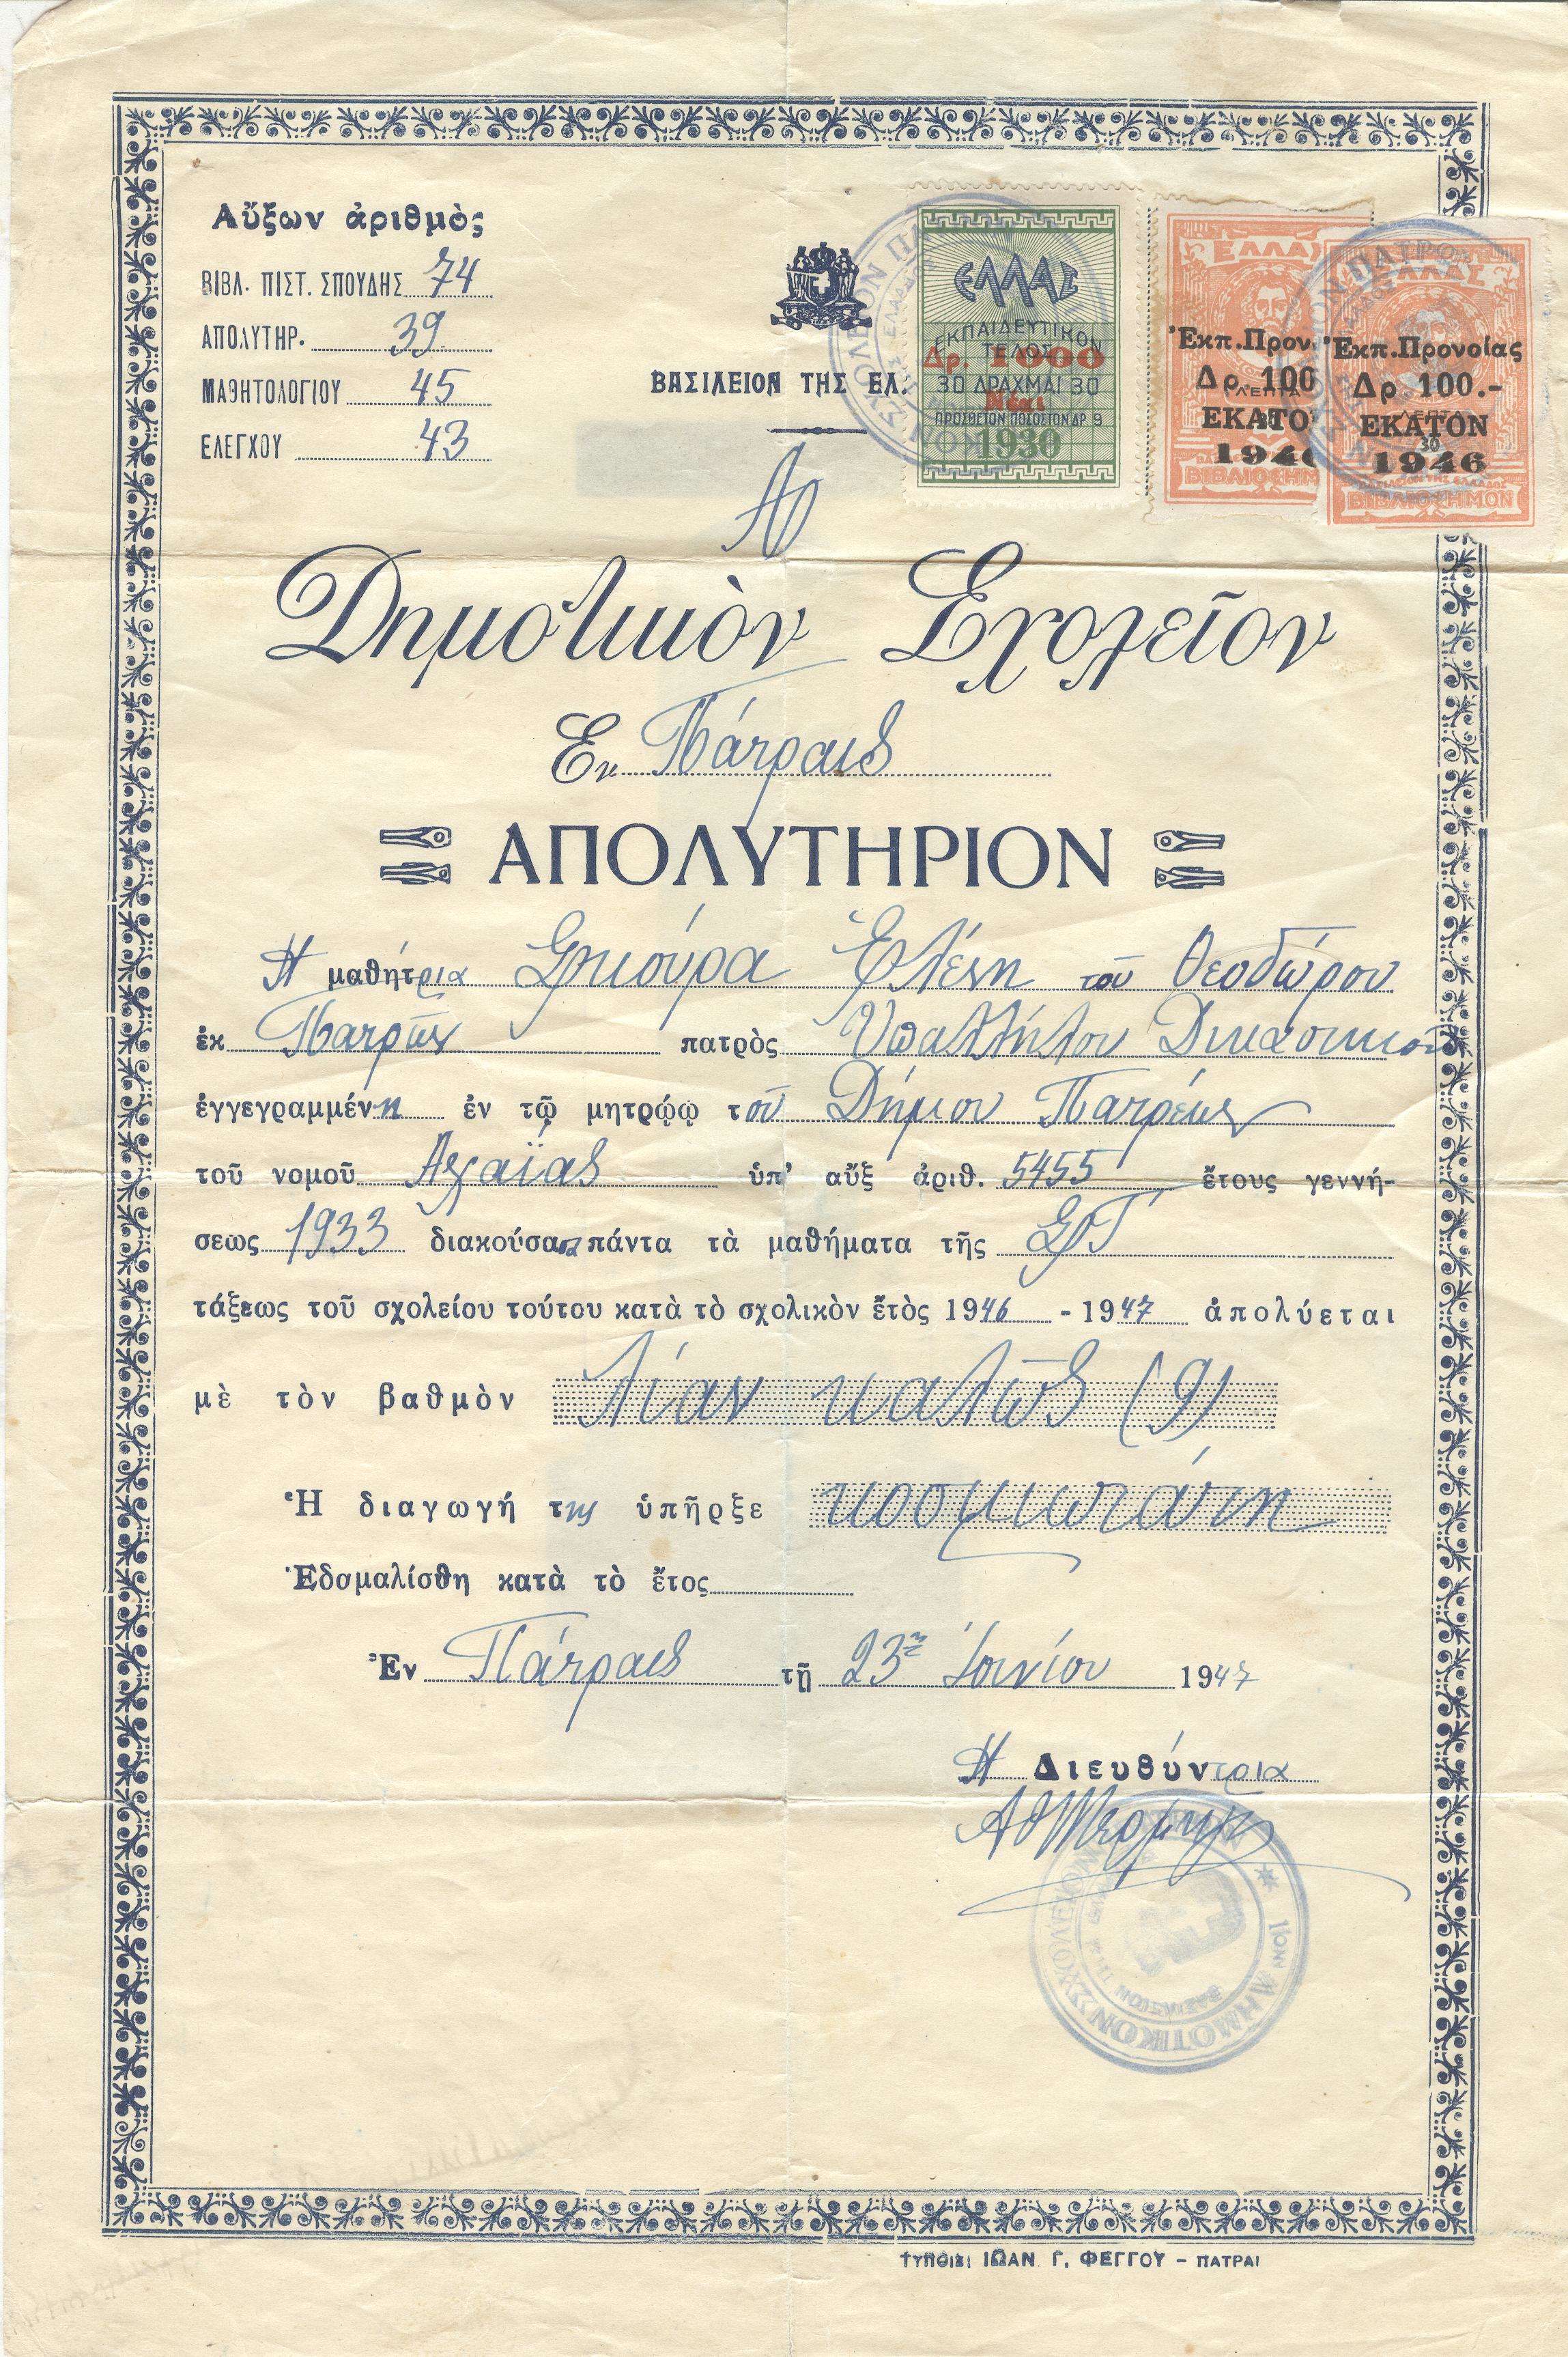 Αὔξων ἀριθμὸς
ΒΙΒΛ. ΠΙΣΤ. ΣΠΟΥΔΗΣ 74
ΑΠΟΛΥΤΗΡ. 39
ΜΑΘΗΤΟΛΟΓΙΟΥ 45
ΕΛΕΓΧΟΥ 43
ΒΑΣΙΛΕΙΟΝ ΤΗΣ ΕΛ
ΕΛΛΑΣ
ΕΚΠΑΙΔΕΥΤΙΚΟΝ
ΤΕΛΟΣ
Δρ. 1000
30 ΔΡΑΧΜΑΙ 30
Νέαι
ΠΡΟΣΘΕΤΟΝ ΠΟΣΟΣΤΟΝ ΔΡ 9
1930
ΕΛΛΑΣ
Ἐκπ.Προν
Δρ. 100
ΛΕΠΤΑ
ΕΚΑΤΟ
194
ΒΙΒΛΙΟΣΗΜ
ΕΛΛΑΣ
Ἐκπ.Προνοίας
Δρ 100.-
ΛΕΠΤΑ
ΕΚΑΤΟΝ
30
1946
ΒΙΒΛΙΟΣΗΜΟΝ
Δημοτικὸν Σχολεῖον
Εν Πάτραις
ΑΠΟΛΥΤΗΡΙΟΝ
Η μαθήτρια Σγκούρα Ἑλένη τοῦ Θεοδώρου
ἐκ Πατρῶν πατρὸς Ὑπαλλήλου Δικαστικοῦ
ἐγγεγραμμένη ἐν τῷ μητρῴῳ τοῦ Δήμου Πατρέων
τοῦ νομοῦ Ἀχαΐας ὑπ' αὔξ ἀριθ. 5455 ἔτους γεννή-
σεως 1933 διακούσασα πάντα τὰ μαθήματα τῆς ΣΤ'
τάξεως τοῦ σχολείου τούτου κατὰ τὸ σχολικὸν ἔτὸς 1946 - 1947 ἀπολύεται
μὲ τὸν βαθμὸν λίαν καλῶς (9)
Ἡ διαγωγή της ὑπῆρξε κοσμιωτάτη
Ἐδαμαλίσθη κατὰ τὸ ἔτος
Ἐν Πάτραις τῇ 23ῃ Ἰουνίου 1947
Η Διευθύντρια
ΔΗΜΟΤΙΚΟΝ ΣΧΟΛΕΙΟΝ
ΒΑΣΙΛΕΙΟΝ
ΤΥΠΟΙΣ: ΙΩΑΝ. Γ. ΦΕΓΓΟΥ - ΠΑΤΡΑΙ